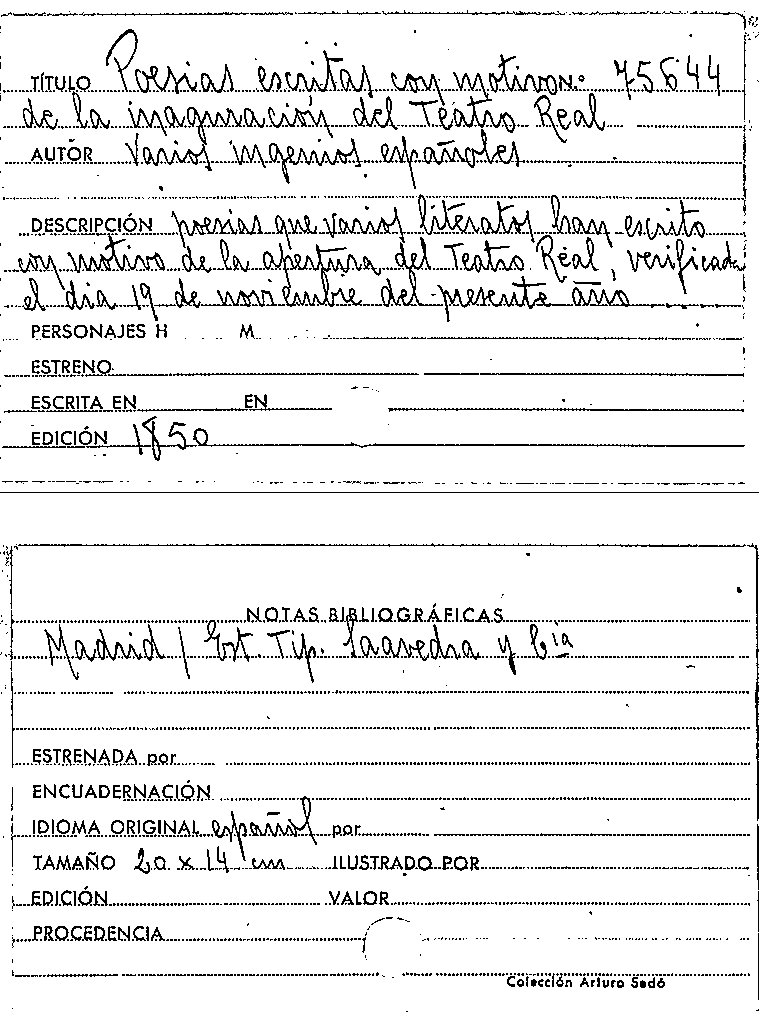 TÍTULO Poesias escritas con motivo 75644
de la inaguración del Teatro Real
AUTOR Varios ingenios españoles
DESCRIPCIÓN poesias que varios literatos han escrito
con motivo de la apertura del Teatro Real, verificada
el dia 19 de noviembre del presente año
PERSONAJES H M
ESTRENO
ESCRITA EN EN
EDICIÓN 1850
NOTAS BIBLIOGRÁFICAS
Madrid / Est. Tip. Saavedra y Cía
ESTRENADA por
ENCUADERNACIÓN
IDIOMA ORIGINAL español por
TAMAÑO 20 x 14 cm ILUSTRADO POR
EDICIÓN VALOR
PROCEDENCIA
Colección Arturo Sedó